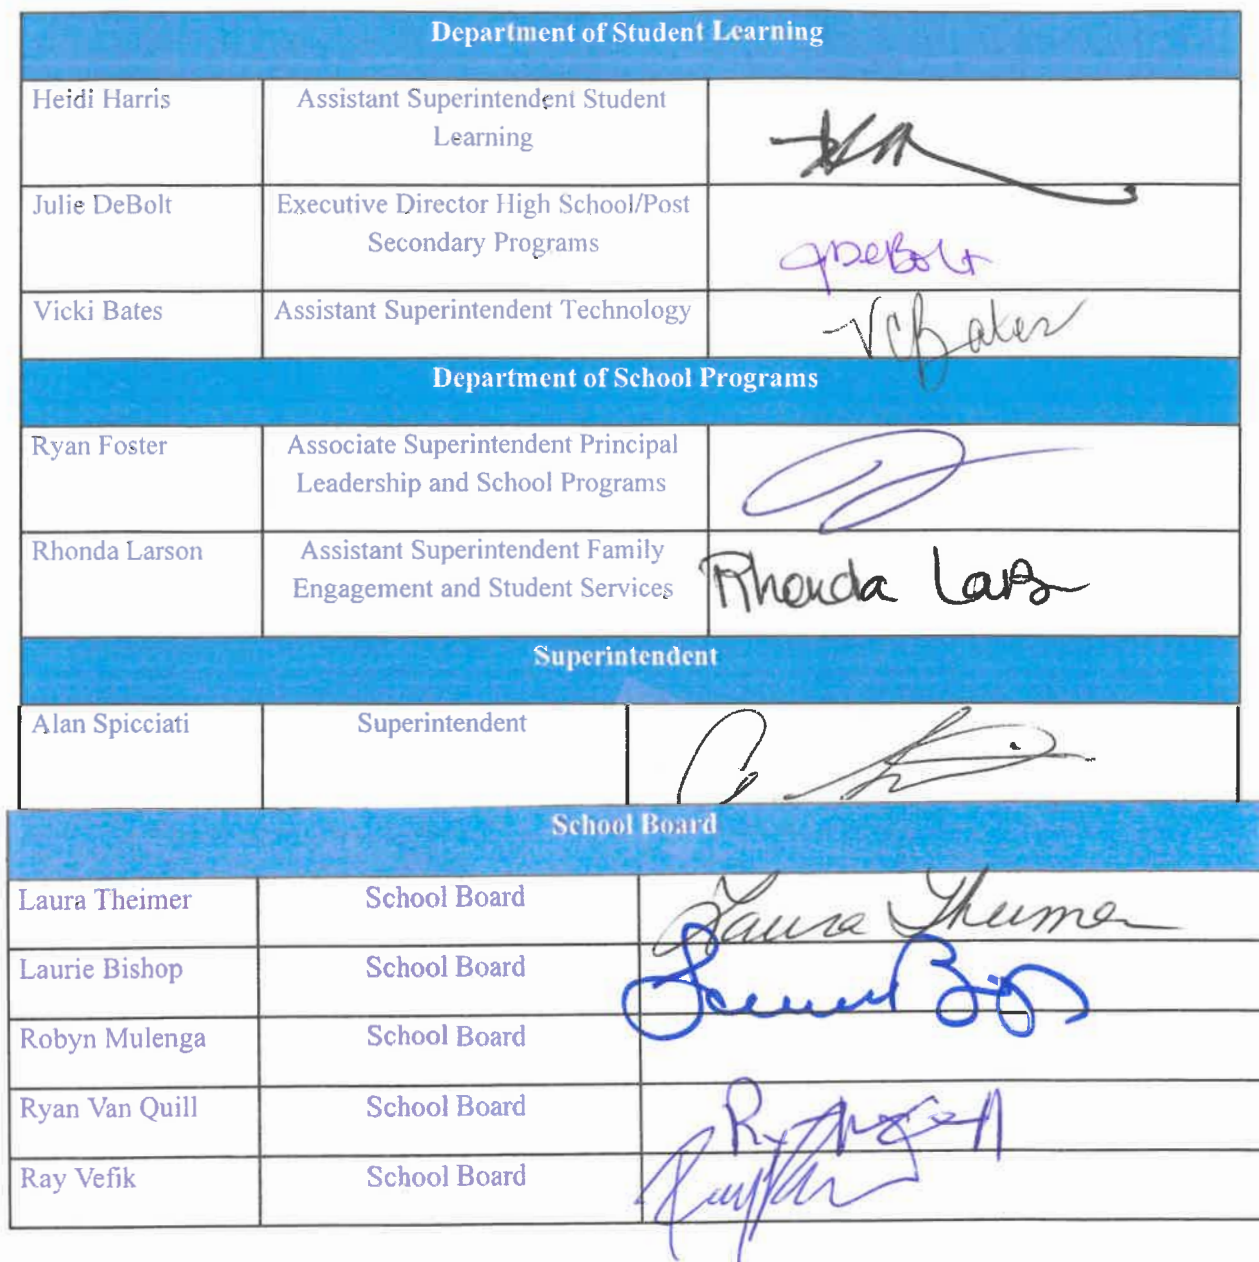 Department of Student Learning
Heidi Harris
Assistant Superintendent Student
Learning
Julie DeBolt
Executive Director High School/Post
Secondary Programs
JDeBolt
Vicki Bates
Assistant Superintendent Technology
VCBates
Department of School Programs
Ryan Foster
Associate Superintendent Principal
Leadership and School Programs
Rhonda Larson
Assistant Superintendent Family
Engagement and Student Services
Rhonda Lars
Superintendent
Alan Spicciati
Superintendent
School Board
Laura Theimer
School Board
Laura Theimer
Laurie Bishop
School Board
Robyn Mulenga
School Board
Ryan Van Quill
School Board
Ray Vefik
School Board